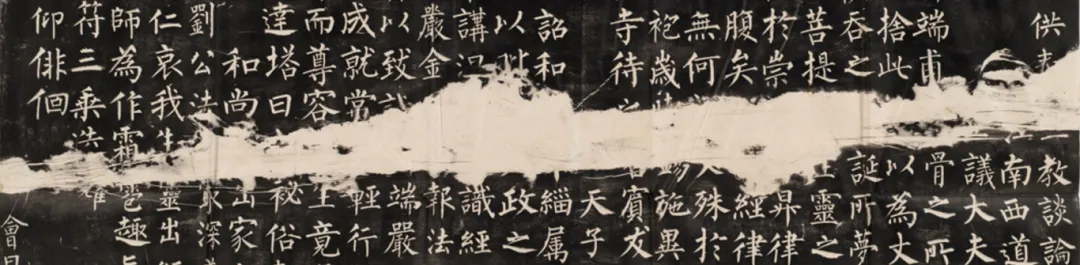 供 教談論
南西道
議大夫
端甫 骨之所
捨此 以為丈
吞之 誕所夢
菩提 靈之
於崇 昇律
腹矣 經律
無何 殊於
袍歲 施異
寺待 賓友
天子
詔和 緇属
以 政之
講 識經
嚴金 報法
以致 端嚴
成就常 輕行
而尊容 王竟
達塔曰 秘俗
和尚 山家
劉公法 深
仁哀我生靈出
師為作霜雹趣
符三乘
仰俳佪
會